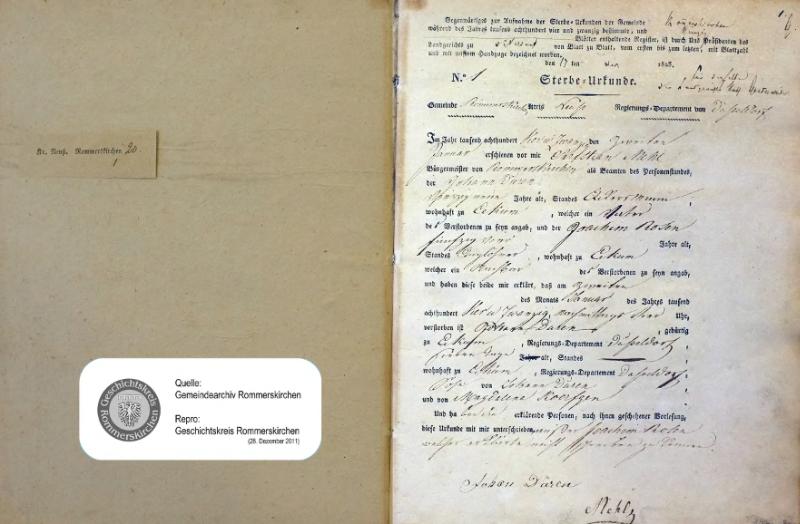 Kr. Neuß, Rommerskirchen 20.
1
Geschichtskreis
Rommerskirchen
Quelle:
Gemeindearchiv Rommerskirchen
Repro:
Geschichtskreis Rommerskirchen
(28. Dezember 2011)
Gegenwärtiges zur Aufnahme der Sterbe-Urkunden der Gemeinde
während des Jahres tausend achthundert vier und zwanzig bestimmte, und
Blätter enthaltende Register, ist durch Uns Präsidenten des
Landgerichts zu von Blatt zu Blatt, vom ersten bis zum letzten, mit Blattzahl
und mit unserm Handzuge bezeichnet worden.
den 17 ten 1823.
N.º 1 Sterbe-Urkunde.
Gemeinde Rommerskirchen Kreis Neuss Regierungs-Departement von Düsseldorf
Im Jahr tausend achthundert Vier u Zwanzig den Zweiten
Januar erschienen vor mir Christian Mehl
Bürgermeister von Rommerskirchen als Beamten des Personenstandes,
der Johann Düren
Jahre alt, Standes Ackersmann,
wohnhaft zu Eckum, welcher ein Vater
des Verstorbenen zu seyn angab, und der Joachim Rosen
fünfzig vier Jahre alt,
Standes Taglöhner, wohnhaft zu Eckum
welcher ein Nachbar des Verstorbenen zu seyn angab,
und haben diese beide mir erklärt, daß am Zweiten
des Monats Januar des Jahres tausend
achthundert Vier u Zwanzig, nachmittags Uhr,
verstorben ist Düren, gebürtig
zu Eckum, Regierungs-Departement Düsseldorf
sieben Tage Jahre alt, Standes
wohnhaft zu Eckum, Regierungs-Departement Düsseldorf
von Johann Düren
und von Magdalena
Und ha beide erklärende Personen, nach ihnen geschehener Vorlesung,
diese Urkunde mit mir unterschrieben, Joachim Rosen
welcher erklärte nicht schreiben zu können.
Johann Düren
Mehl